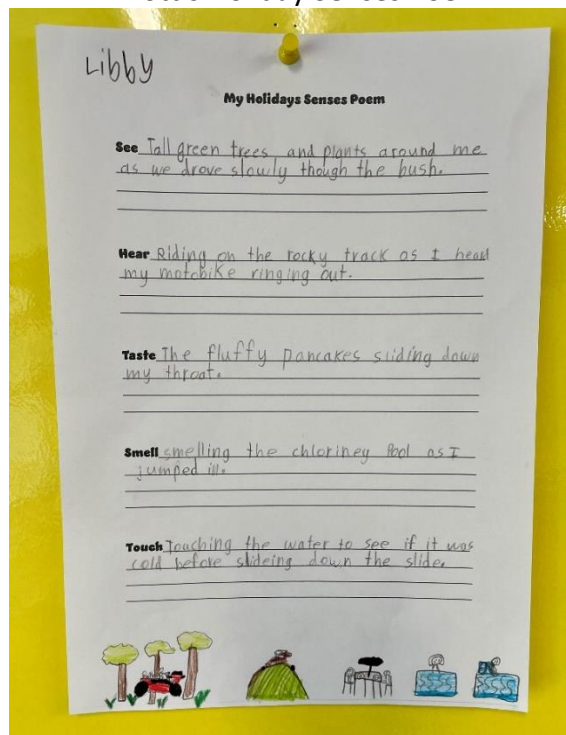 Libby
My Holidays Senses Poem
See Tall green trees and plants around me
as we drove slowly though the bush.
Hear Riding on the rocky track as I heard
my motobike ringing out.
Taste The fluffy pancakes sliding down
my throat.
Smell smelling the chloriney Pool as I
jumped in.
Touch Touching the water to see if it was
cold before slideing down the slide.